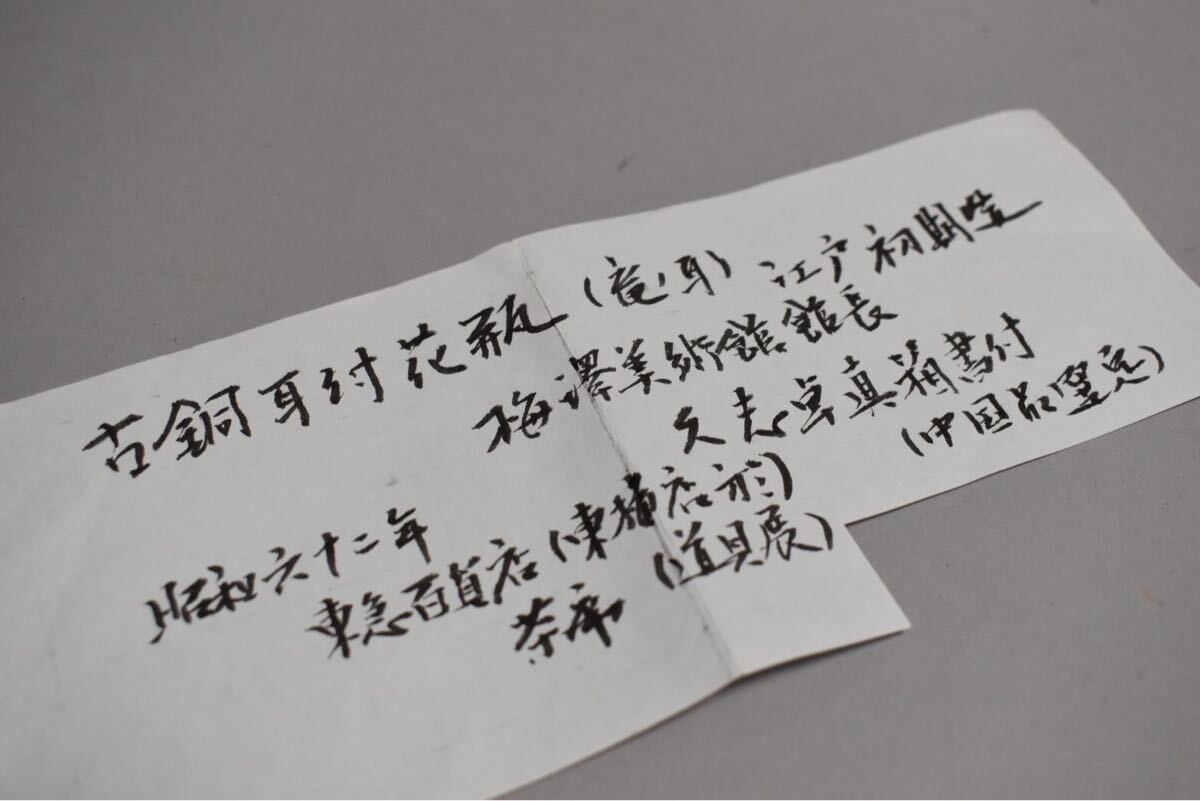 古銅耳付花瓶(竜ノ耳)江戸初期
梅澤美術館館長
久志卓真箱書付
(中国品鑒定)
昭和六十二年
東急百貨店(東横店於)
茶席(道具展)